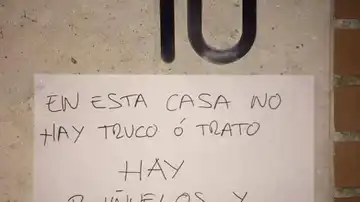 10
EN ESTA CASA NO
HAY TRUCO Ó TRATO
HAY
BUÑUELOS Y